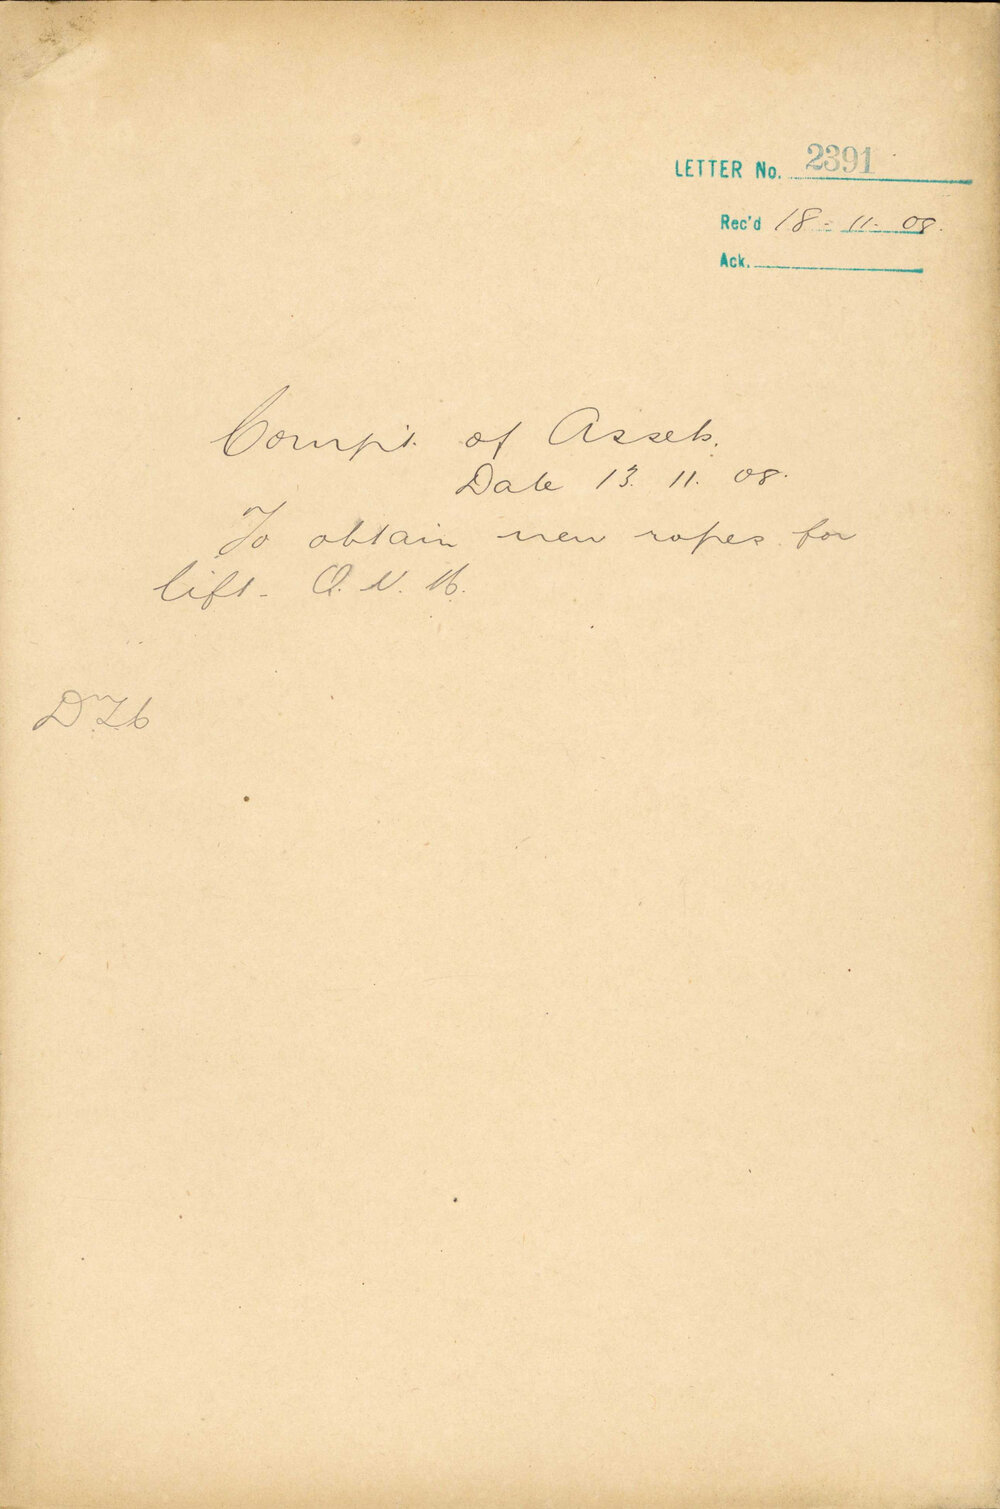 LETTER No. 2391
Rec'd 18-11-08.
Ack.
Compt. of Assets.
Date 13. 11. 08.
To obtain new ropes for
lift. Q. V. M.